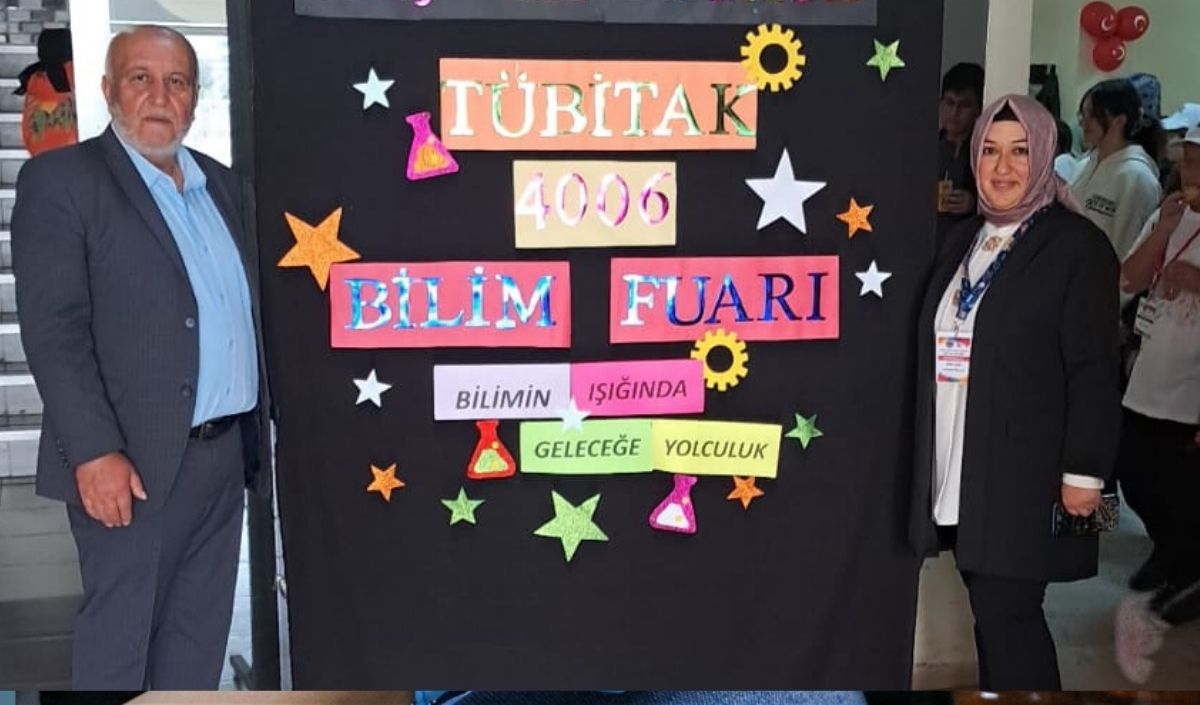 TÜBİTAK
4006
BİLİM FUARI
BİLİMİN IŞIĞINDA
GELECEĞE YOLCULUK